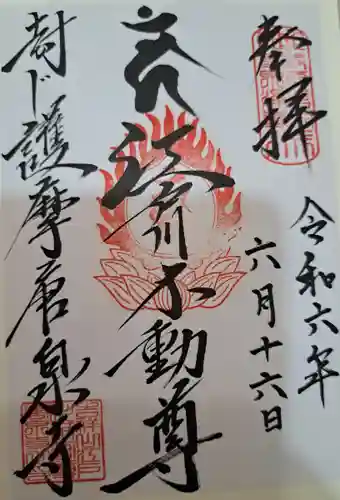 奉拝
令和六年
六月十六日
江戸川不動尊
封じ護摩唐泉寺